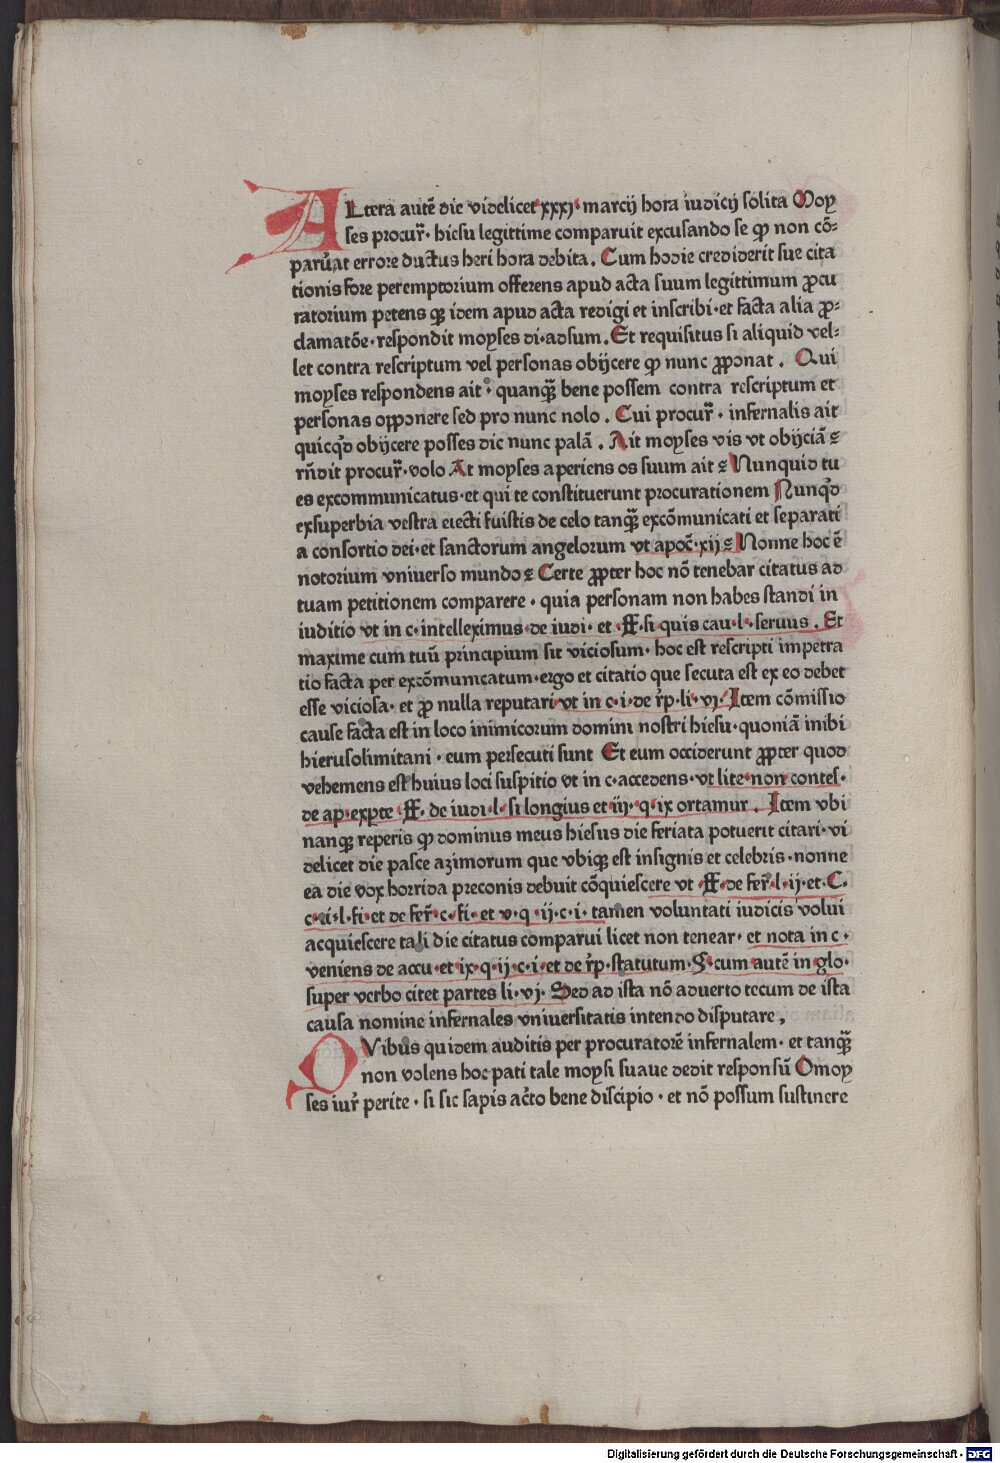 ALtera autē die videlicet xxxj marcij hora iudicij solita Moy
ses procur̄· hiesu legittime comparuit excusando se ꝙ non cō-
paruāt errore ductus heri hora debita. Cum hodie crediderit sue cita
tionis fore peremptorium offerens apud acta suum legittimum ꝓcu
ratorium petens qꝫ idem apud acta redigi et inscribi·et facta alia ꝓ-
clamatōe·respondit moyses di·adsum. Et requisitus si aliquid vel-
let contra rescriptum vel personas obijcere ꝙ nunc ꝓponat. Qui
moyses respondens ait· quanqꝫ bene possem contra rescriptum et
personas opponere sed pro nunc nolo. Cui procur̄· infernalis ait
quicqd̄ obijcere posses dic nunc palā. Ait moyses vis vt obijciā ?
rn̄dit procur̄·volo At moyses aperiens os suum ait ? Nunquid tu
es excommunicatus·et qui te constituerunt procurationem Nunqd̄
exsuperbia vestra eiecti fuistis de celo tanqꝫ excōmunicati et separati
a consortio dei·et sanctorum angelorum vt apoc̄·xij ? Nonne hoc ē
notorium vniuerso mundo ? Certe ꝓpter hoc nō tenebar citatus ad
tuam petitionem comparere· quia personam non habes standi in
iuditio vt in c·intelleximus·de iudi· et ·ff·si quis cau·l·seruus. Et
maxime cum tuū principium sit viciosum· hoc est rescripti impetra
tio facta per excōmunicatum·ergo et citatio que secuta est ex eo debet
esse viciosa· et ꝓ nulla reputari vt in c·i·de r̄p·li·vj·Item cōmissio
cause facta est in loco inimicorum domini nostri hiesu·quoniā inibi
hierusolimitani· eum persecuti sunt Et eum occiderunt ꝓpter quod
vehemens est huius loci suspitio vt in c·accedens·vt lite non contes·
de ap·expte ·ff· de iudi·l·si longius et iij·q·ix ortamur. Item vbi
nanqꝫ reperis ꝙ dominus meus hiesus die feriata potuerit citari·vi
delicet die pasce azimorum que vbiqꝫ est insignis et celebris·nonne
ea die vox horrida preconis debuit cōquiescere vt ·ff·de fer̄·l·ij·et·C·
c·ei·l·fi·et de fer̄·c·fi·et v·q·ij·c·i·tamen voluntati iudicis volui
acquiescere tali die citatus comparui licet non tenear·et nota in c·
veniens de accu·et ix·q·ij·c·i·et de r̄p·statutum·§·cum autē in glo·
super verbo citet partes li·vj· Sed ad ista nō aduerto tecum de ista
causa nomine infernales vniuersitatis intendo disputare,
QVibus quidem auditis per procuratorē infernalem· et tanqꝫ
non volens hoc pati tale moysi suaue dedit responsū Omoy
ses iur̄ perite· si sic sapis ac̄to bene discipio· et nō possum sustinere
Digitalisierung gefördert durch die Deutsche Forschungsgemeinschaft - DFG